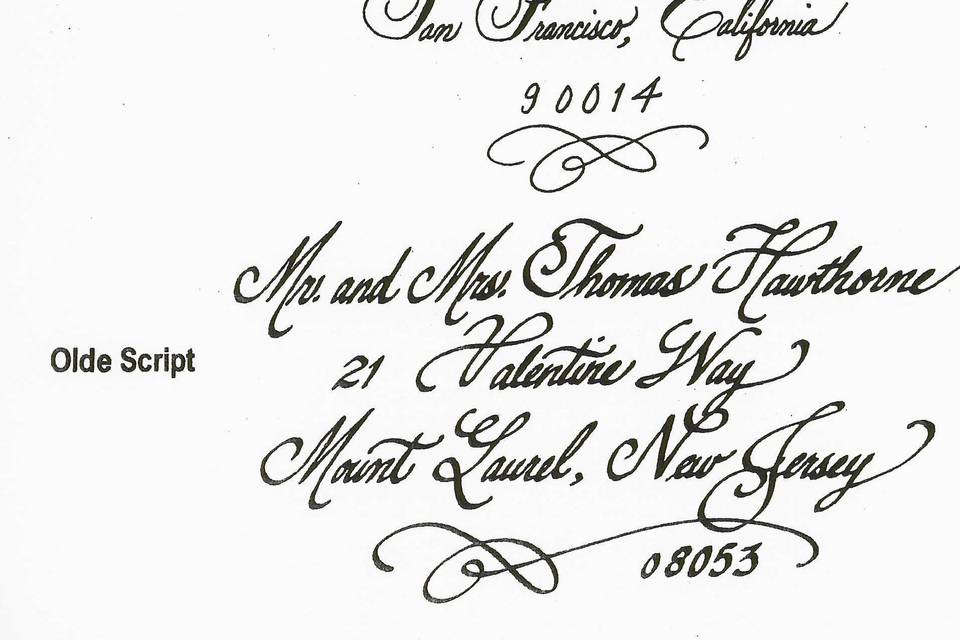 San Francisco, California
90014
Mr. and Mrs. Thomas Hawthorne
Olde Script
21 Valentine Way
Mount Laurel, New Jersey
08053